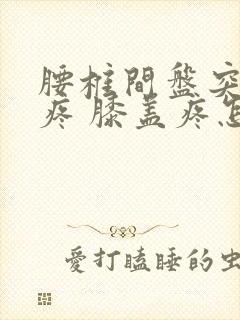 腰柱間盤突
疼 膝盖疼怎
愛打瞌睡的虫